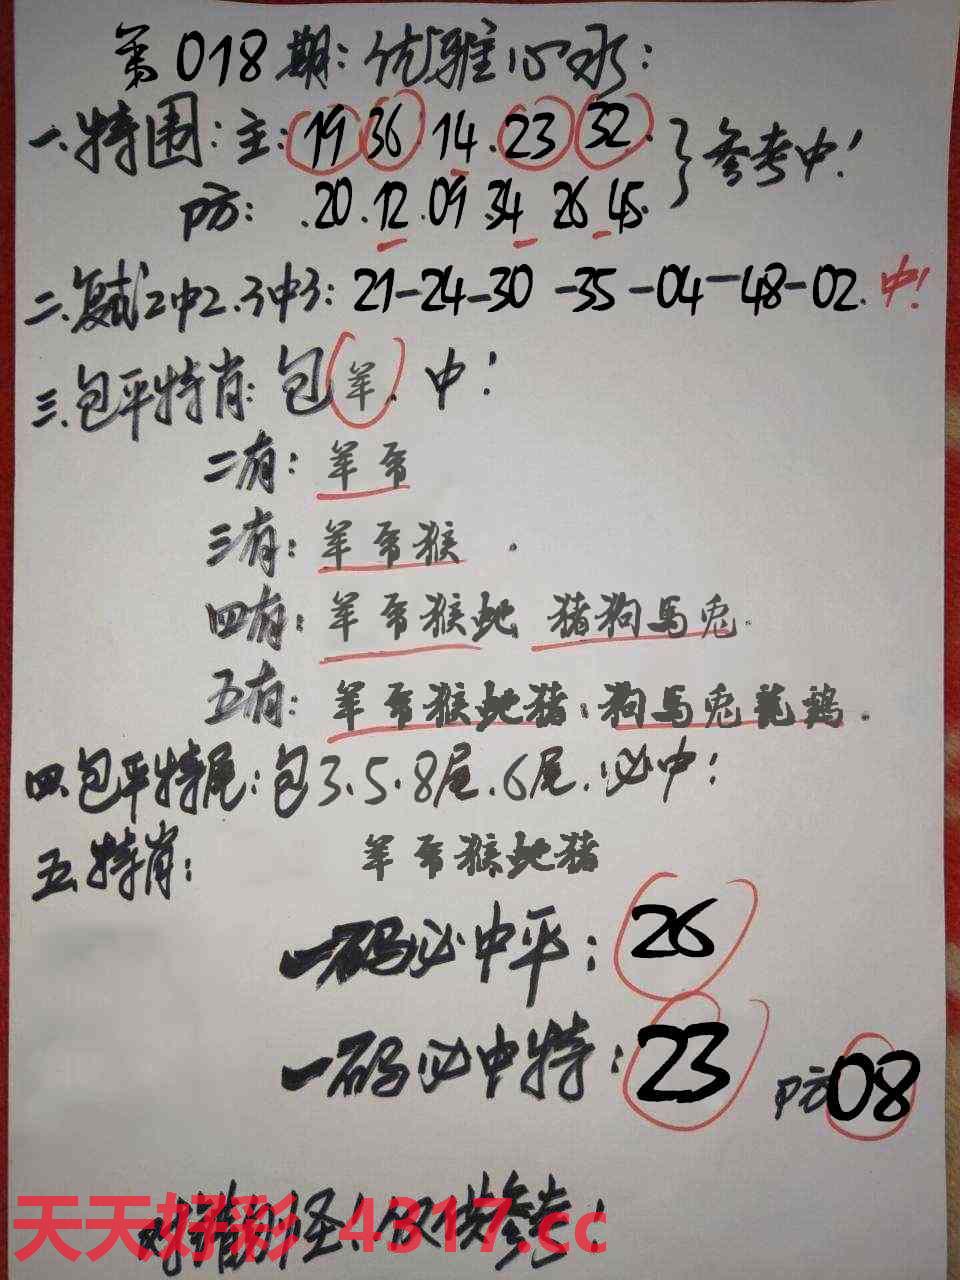 第018期:优雅心水:
一.特围:主:19 36.14.23 32.}参考中!
防:.20.12.09 34 26 45.
二.复试2中2.3中3:21-24-30-35-04-48-02.中!
三.包平特肖:包羊.中!
二有:羊帝
三有:羊帝猴.
四有:羊帝猴蛇 猪狗马兔.
五有:羊帝猴蛇猪.狗马兔龍鷄.
四.包平特尾:包3.5.8尾.6尾.必中!
五.特肖:羊帝猴蛇猪
一码必中平:26
一码必中特:23 防08
对错勿怪!仅供参考!
天天好彩 4317.cc